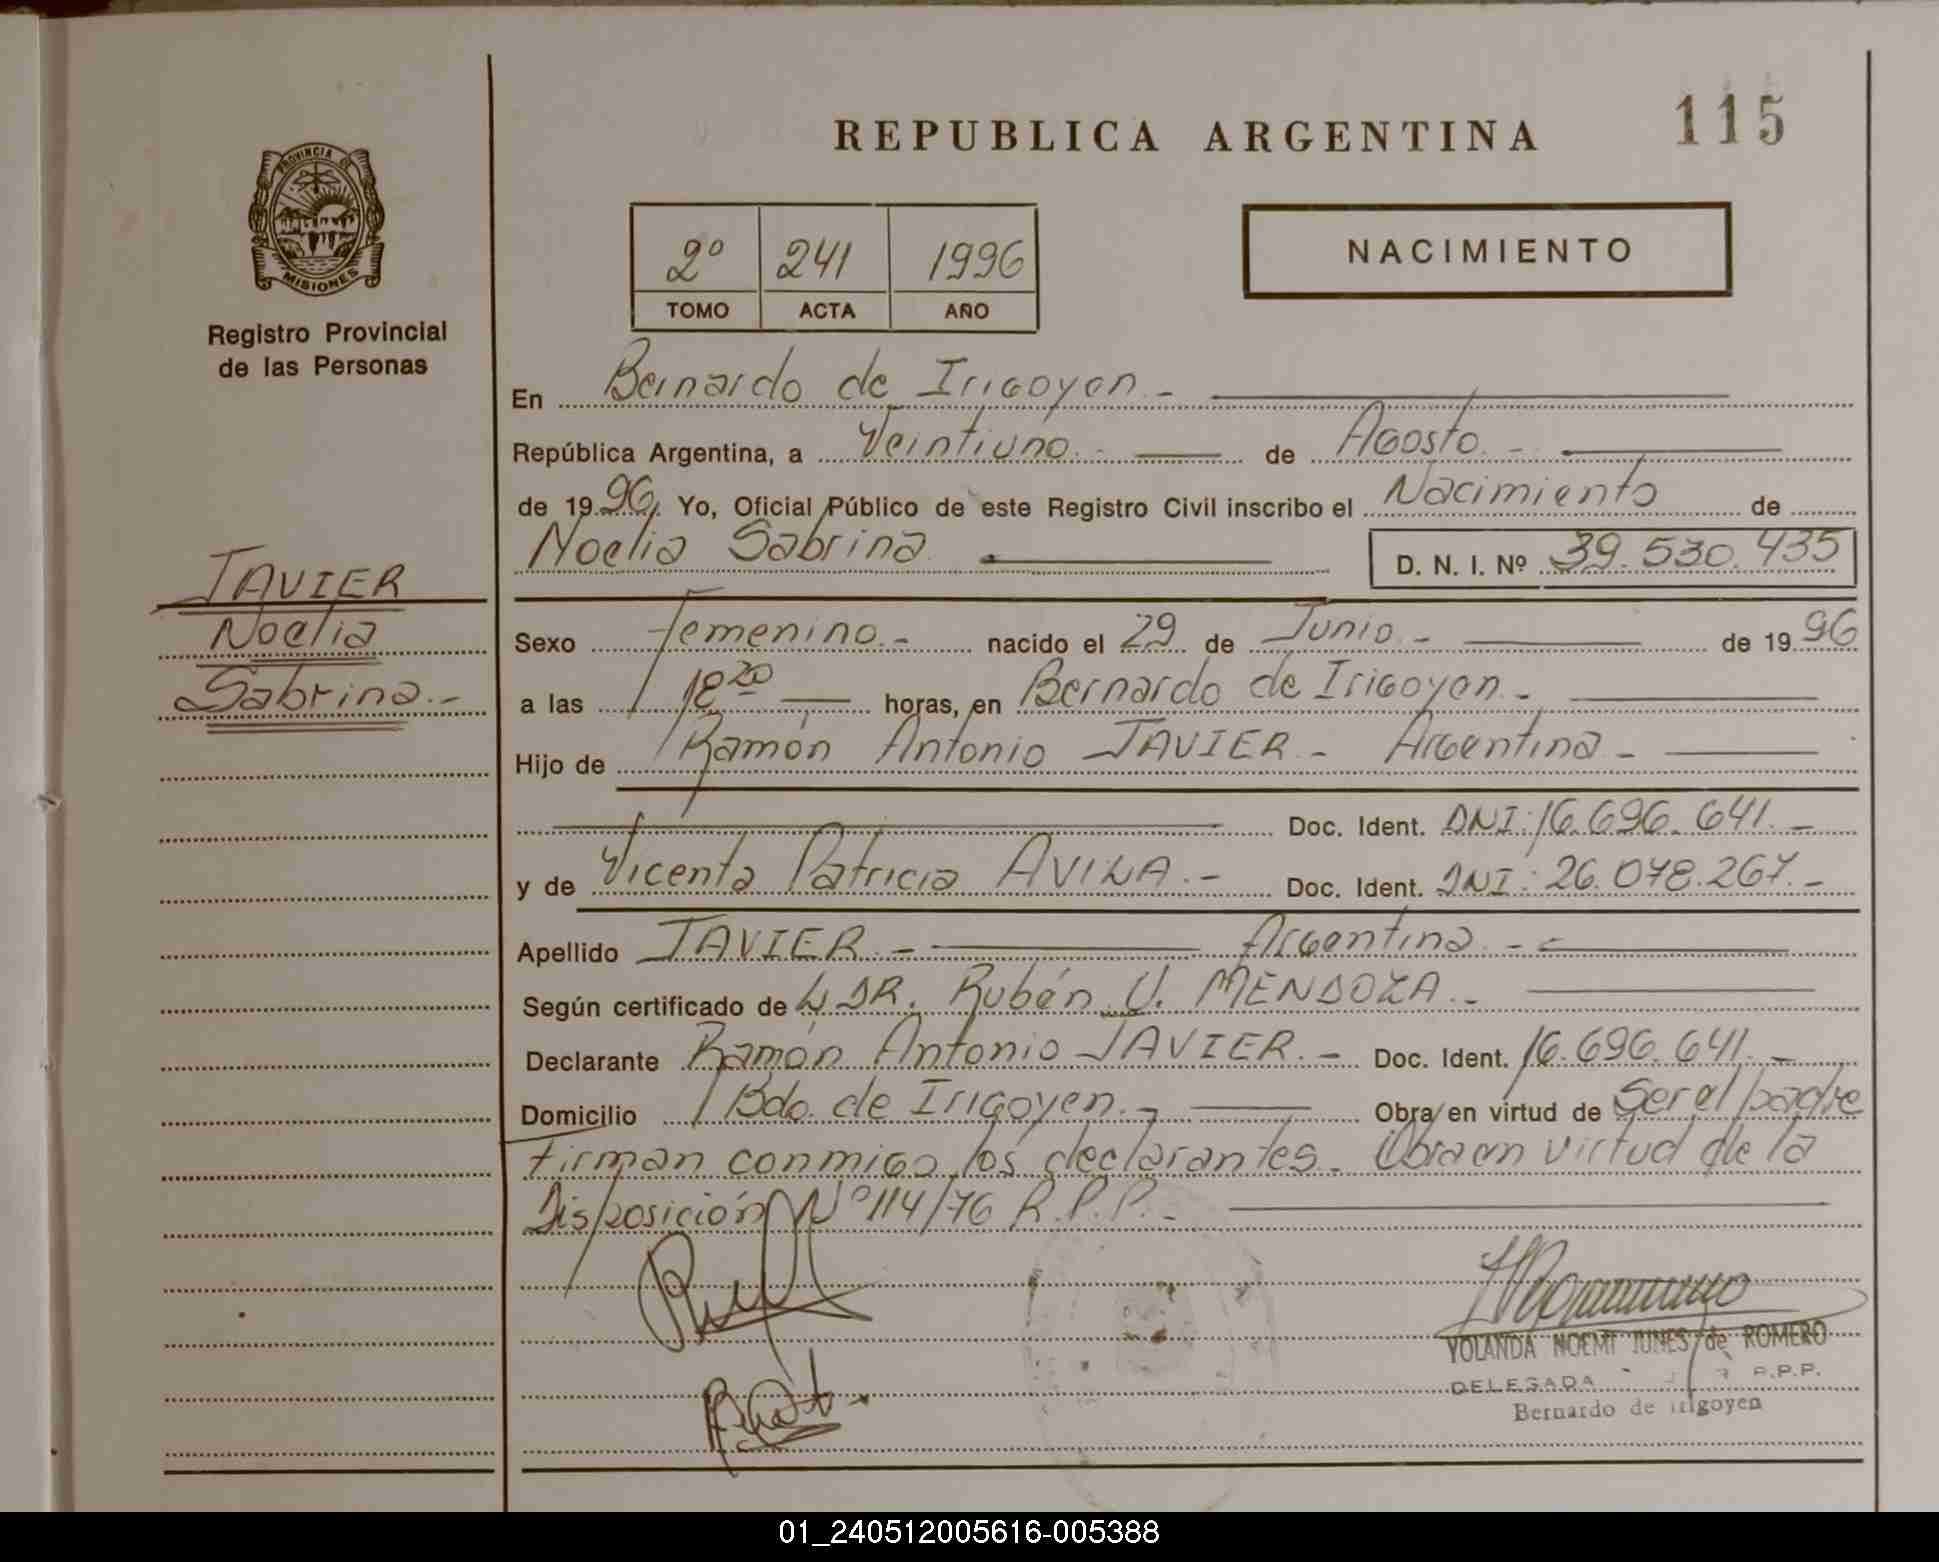 115
REPUBLICA ARGENTINA
PROVINCIA DE
MISIONES
Registro Provincial
de las Personas
2º 241 1996
TOMO ACTA AÑO
NACIMIENTO
En Bernardo de Irigoyen.-
República Argentina, a Veintiuno.- de Agosto.-
de 1996. Yo, Oficial Público de este Registro Civil inscribo el Nacimiento de
Noelia Sabrina D. N. I. Nº 39.530.435
JAVIER
Noelia
Sabrina.-
Sexo Femenino.- nacido el 29 de Junio.- de 1996
a las 18 20 horas, en Bernardo de Irigoyen.-
Hijo de Ramón Antonio JAVIER.- Argentina.-
Doc. Ident. DNI: 16.696.641.-
y de Vicenta Patricia AVILA.- Doc. Ident. DNI: 26.078.267.-
Apellido JAVIER.- Argentina.-
Según certificado de L DR. Rubén U. MENDOZA.-
Declarante Ramón Antonio JAVIER.- Doc. Ident. 16.696.641.-
Domicilio Bdo. de Irigoyen.- Obra en virtud de ser el padre
firman conmigo los declarantes. Obra en virtud de la
Disposición Nº 114/76 R.P.P.-
YOLANDA NOEMI JUNES de ROMERO
DELEGADA R.P.P.
Bernardo de Irigoyen
01_240512005616-005388